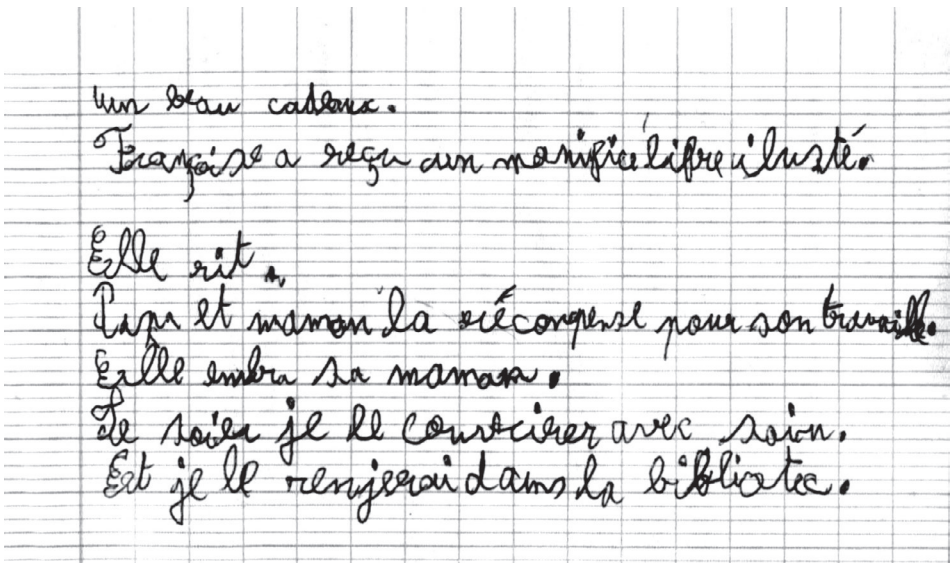 un beau cadeaux.
Françoise a reçu un manifice lifre ilusté.
Elle rit.
Papa et maman la récompense pour son travaille.
Erlle embra sa maman.
Le soier je le couvrcirer avec soin.
Est je le renjerai dams la bibliotec.